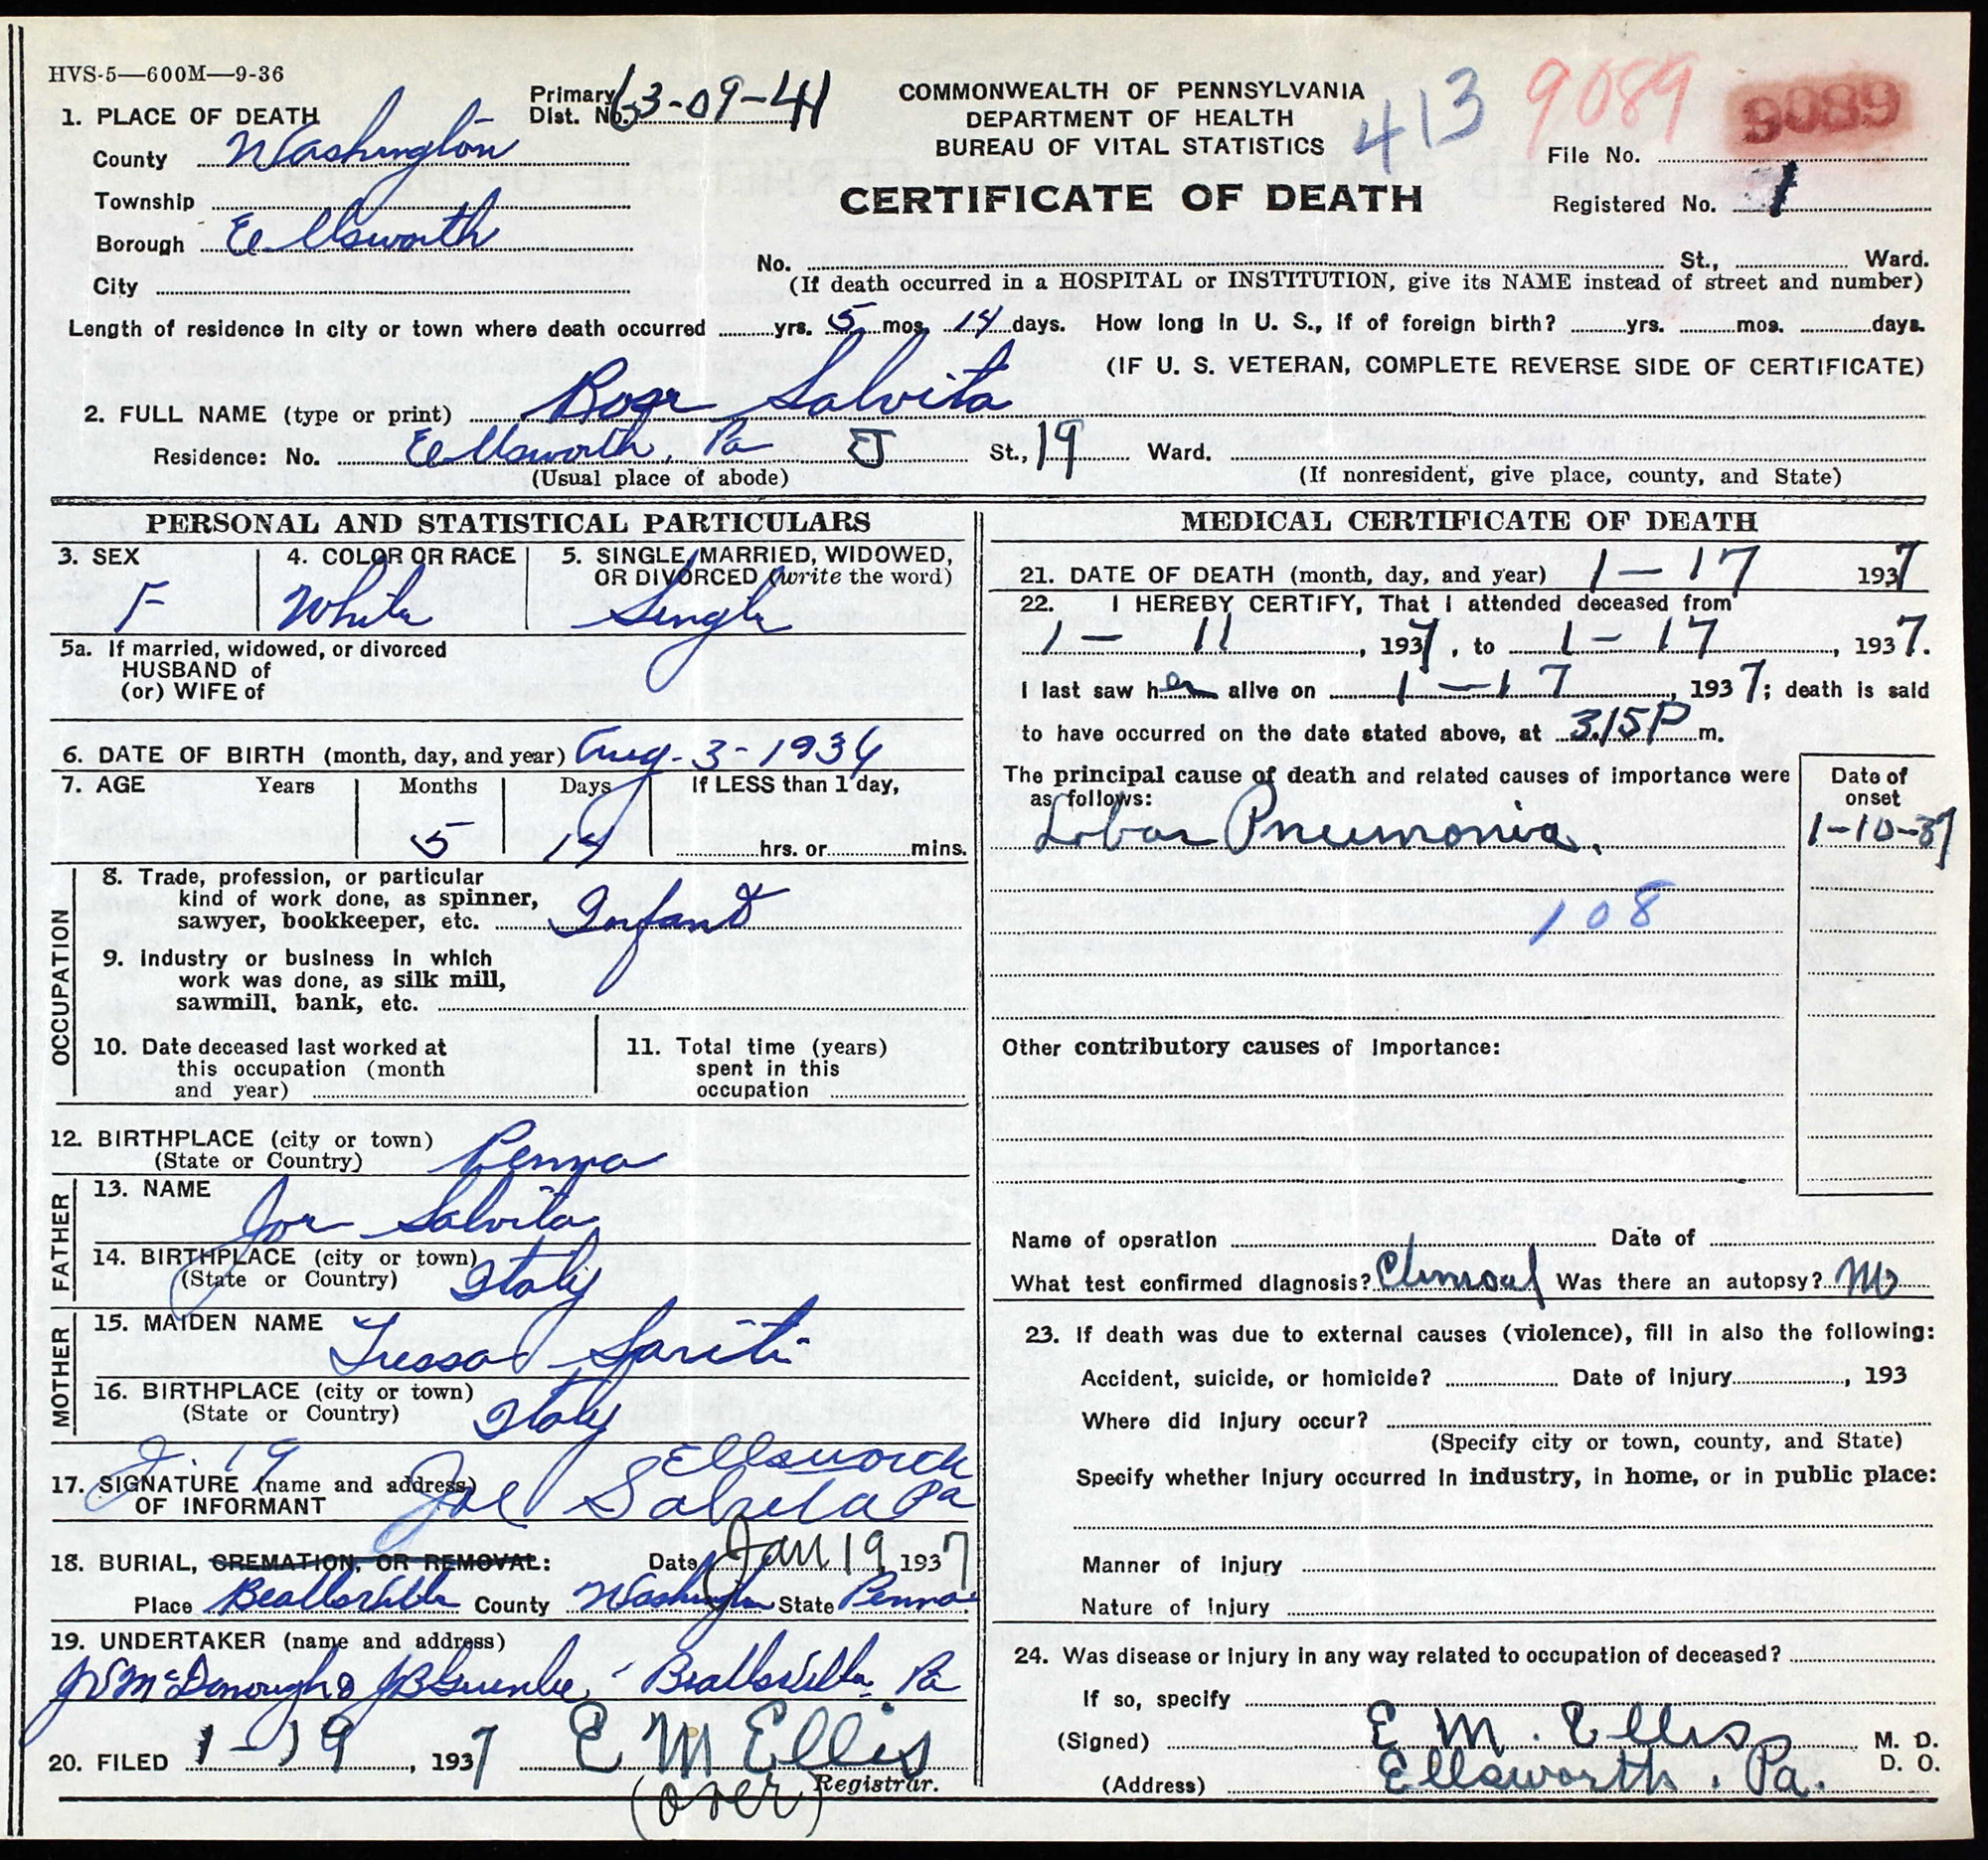 HVS-5—600M—9-36
Primary Dist. No. 63-09-41
COMMONWEALTH OF PENNSYLVANIA
DEPARTMENT OF HEALTH
BUREAU OF VITAL STATISTICS
413 9089 9089
File No.
Registered No. 1
CERTIFICATE OF DEATH
1. PLACE OF DEATH
County Washington
Township
Borough Ellsworth
City
No. St., Ward.
(If death occurred in a HOSPITAL or INSTITUTION, give its NAME instead of street and number)
Length of residence in city or town where death occurred yrs. 5 mos. 14 days. How long in U. S., if of foreign birth? yrs. mos. days.
(IF U. S. VETERAN, COMPLETE REVERSE SIDE OF CERTIFICATE)
2. FULL NAME (type or print) Rose Salvita
Residence: No. Ellsworth, Pa J St., 19 Ward.
(Usual place of abode) (If nonresident, give place, county, and State)
PERSONAL AND STATISTICAL PARTICULARS
3. SEX 4. COLOR OR RACE 5. SINGLE, MARRIED, WIDOWED, OR DIVORCED (write the word)
F White Single
5a. If married, widowed, or divorced
HUSBAND of
(or) WIFE of
6. DATE OF BIRTH (month, day, and year) Aug-3-1936
7. AGE Years Months Days If LESS than 1 day,
5 14 hrs. or mins.
OCCUPATION
8. Trade, profession, or particular
kind of work done, as spinner,
sawyer, bookkeeper, etc. Infant
9. Industry or business in which
work was done, as silk mill,
sawmill, bank, etc.
10. Date deceased last worked at
this occupation (month
and year)
11. Total time (years)
spent in this
occupation
12. BIRTHPLACE (city or town)
(State or Country) Penna
FATHER
13. NAME Joe Salvita
14. BIRTHPLACE (city or town)
(State or Country) Italy
MOTHER
15. MAIDEN NAME Tressa
16. BIRTHPLACE (city or town)
(State or Country) Italy
J. 19 Ellsworth
17. SIGNATURE (name and address)
OF INFORMANT Joe Pa
18. BURIAL, CREMATION, OR REMOVAL: Date Jan 19 1937
Place Beallsville County Washington State Penna.
19. UNDERTAKER (name and address)
McDonough & - Beallsville, Pa
20. FILED 1-19, 1937 E M Ellis
Registrar.
(over)
MEDICAL CERTIFICATE OF DEATH
21. DATE OF DEATH (month, day, and year) 1-17 1937
22. I HEREBY CERTIFY, That I attended deceased from
1-11, 1937, to 1-17, 1937.
I last saw her alive on 1-17, 1937; death is said
to have occurred on the date stated above, at 3.15P m.
The principal cause of death and related causes of importance were
as follows:
Date of
onset
Lobar Pneumonia. 1-10-37
108
Other contributory causes of importance:
Name of operation Date of
What test confirmed diagnosis? Clinical Was there an autopsy? no
23. If death was due to external causes (violence), fill in also the following:
Accident, suicide, or homicide? Date of injury , 193
Where did injury occur?
(Specify city or town, county, and State)
Specify whether injury occurred in industry, in home, or in public place:
Manner of injury
Nature of injury
24. Was disease or injury in any way related to occupation of deceased?
If so, specify
(Signed) E M. Ellis M. D.
D. O.
(Address) Ellsworth. Pa.